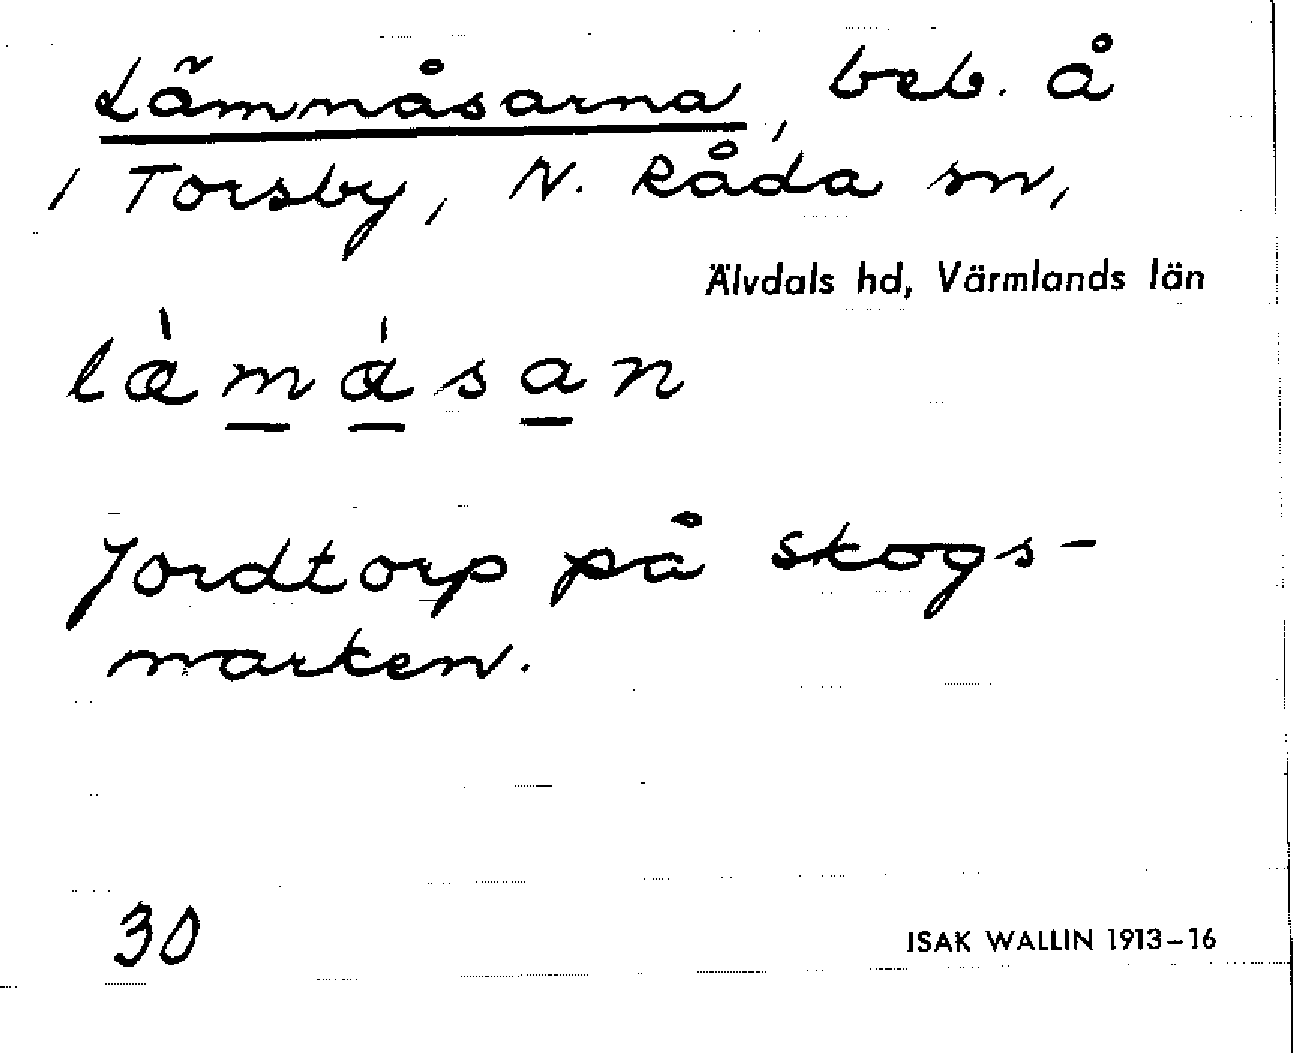 Lämmåsarna, beb. å
1 Torsby, N. Råda sn,
Älvdals hd, Värmlands län
Jordtorp på skogs-
marken.
30
ISAK WALLIN 1913–16